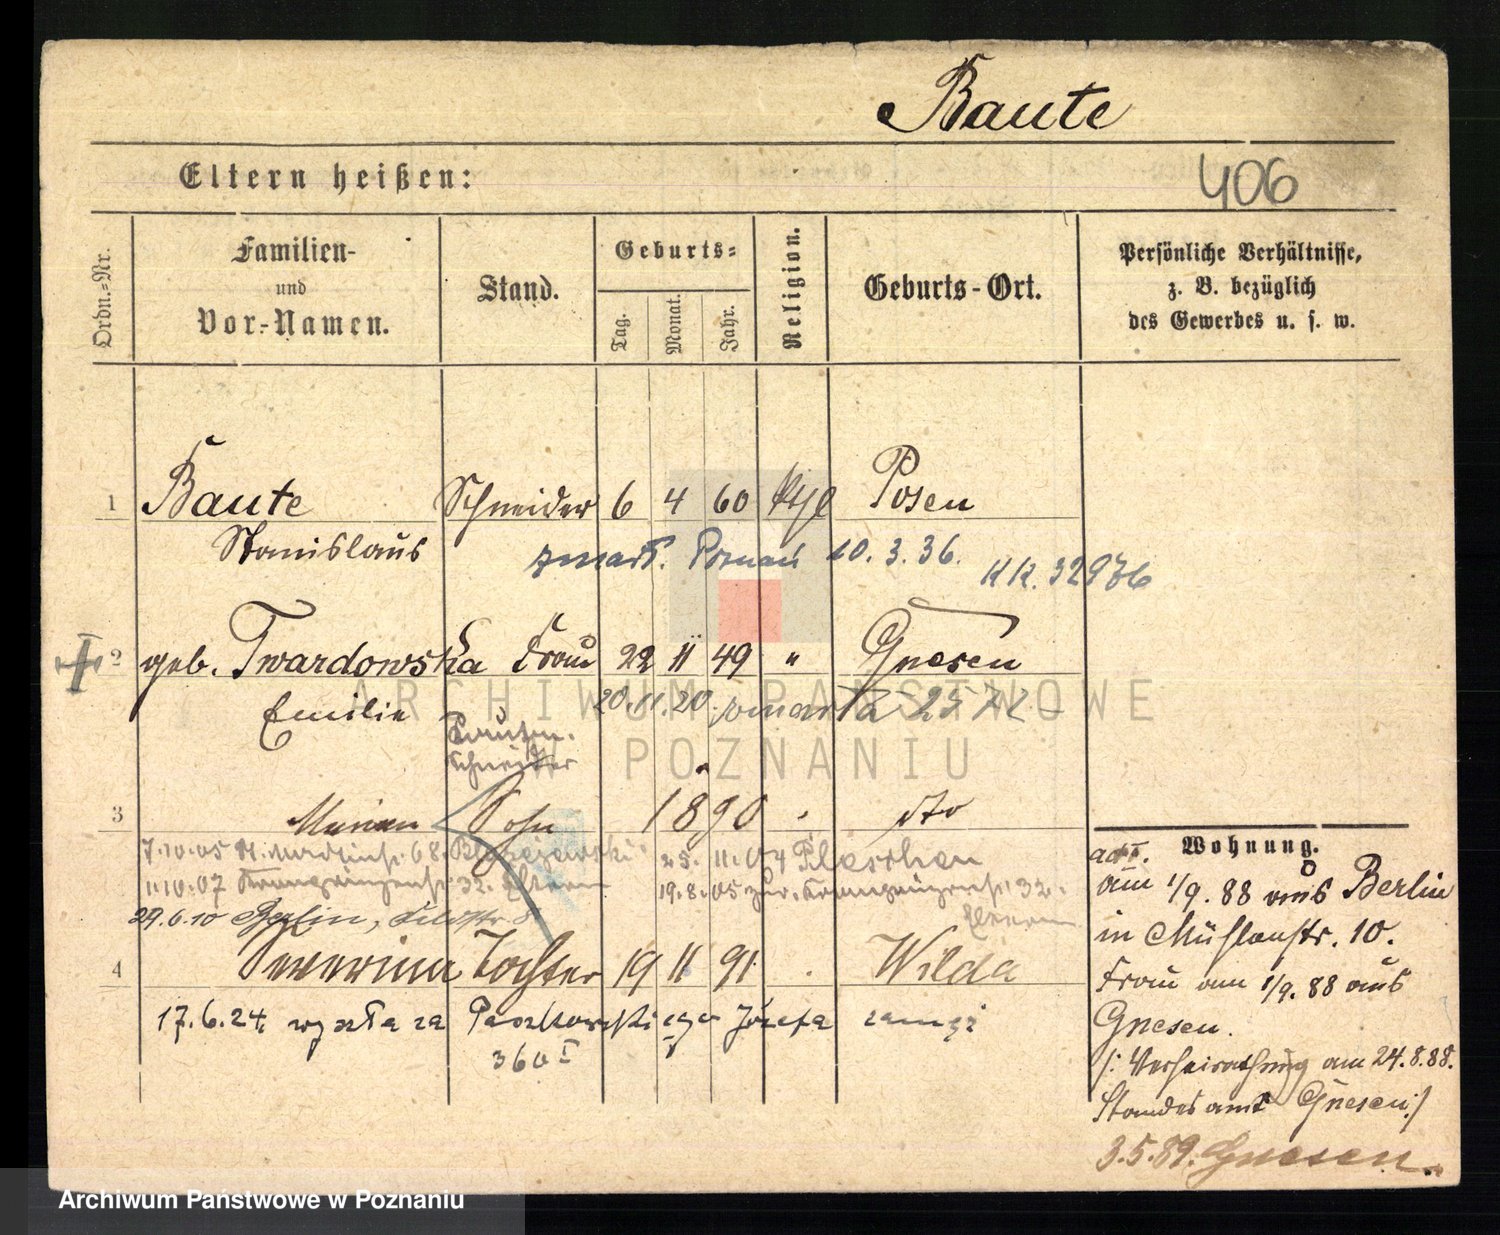 Baute
Eltern heißen:
406
Ordn.-Nr.
Familien-
und
Vor-Namen.
Stand.
Geburts-
Tag.
Monat.
Jahr.
Religion.
Geburts-Ort.
Persönliche Verhältnisse,
z. B. bezüglich
des Gewerbes u. s. w.
1 Baute Schneider 6 4 60 kthl Posen
Stanislaus
zmarł. Poznań 10. 3. 36. KK. 32976
2 geb. Twardowska Frau 22 11 49 " Gnesen
Emilie 20.11.20. zmarła 2572
schneider
3 Marian Sohn 1890 dto
7.10.05 St. Martinstr. 68. 25. 11.04 Pleschen
1.10.07 32. Eltern 19.8.05 zur. 32.
Eltern
29.6.10 Berlin,
4 Severina Tochter 19 11 91 Wilda
17.6.24 wyszła za Józefa
360 I
Wohnung.
am 1/9. 88 aus Berlin
in Mühlenstr. 10.
Frau am 1/9. 88 aus
Gnesen.
/: Verheirathung am 24.8.88.
Standesamt Gnesen :/
3.5.89. Gnesen.
ARCHIWUM PAŃSTWOWE
W POZNANIU
Archiwum Państwowe w Poznaniu